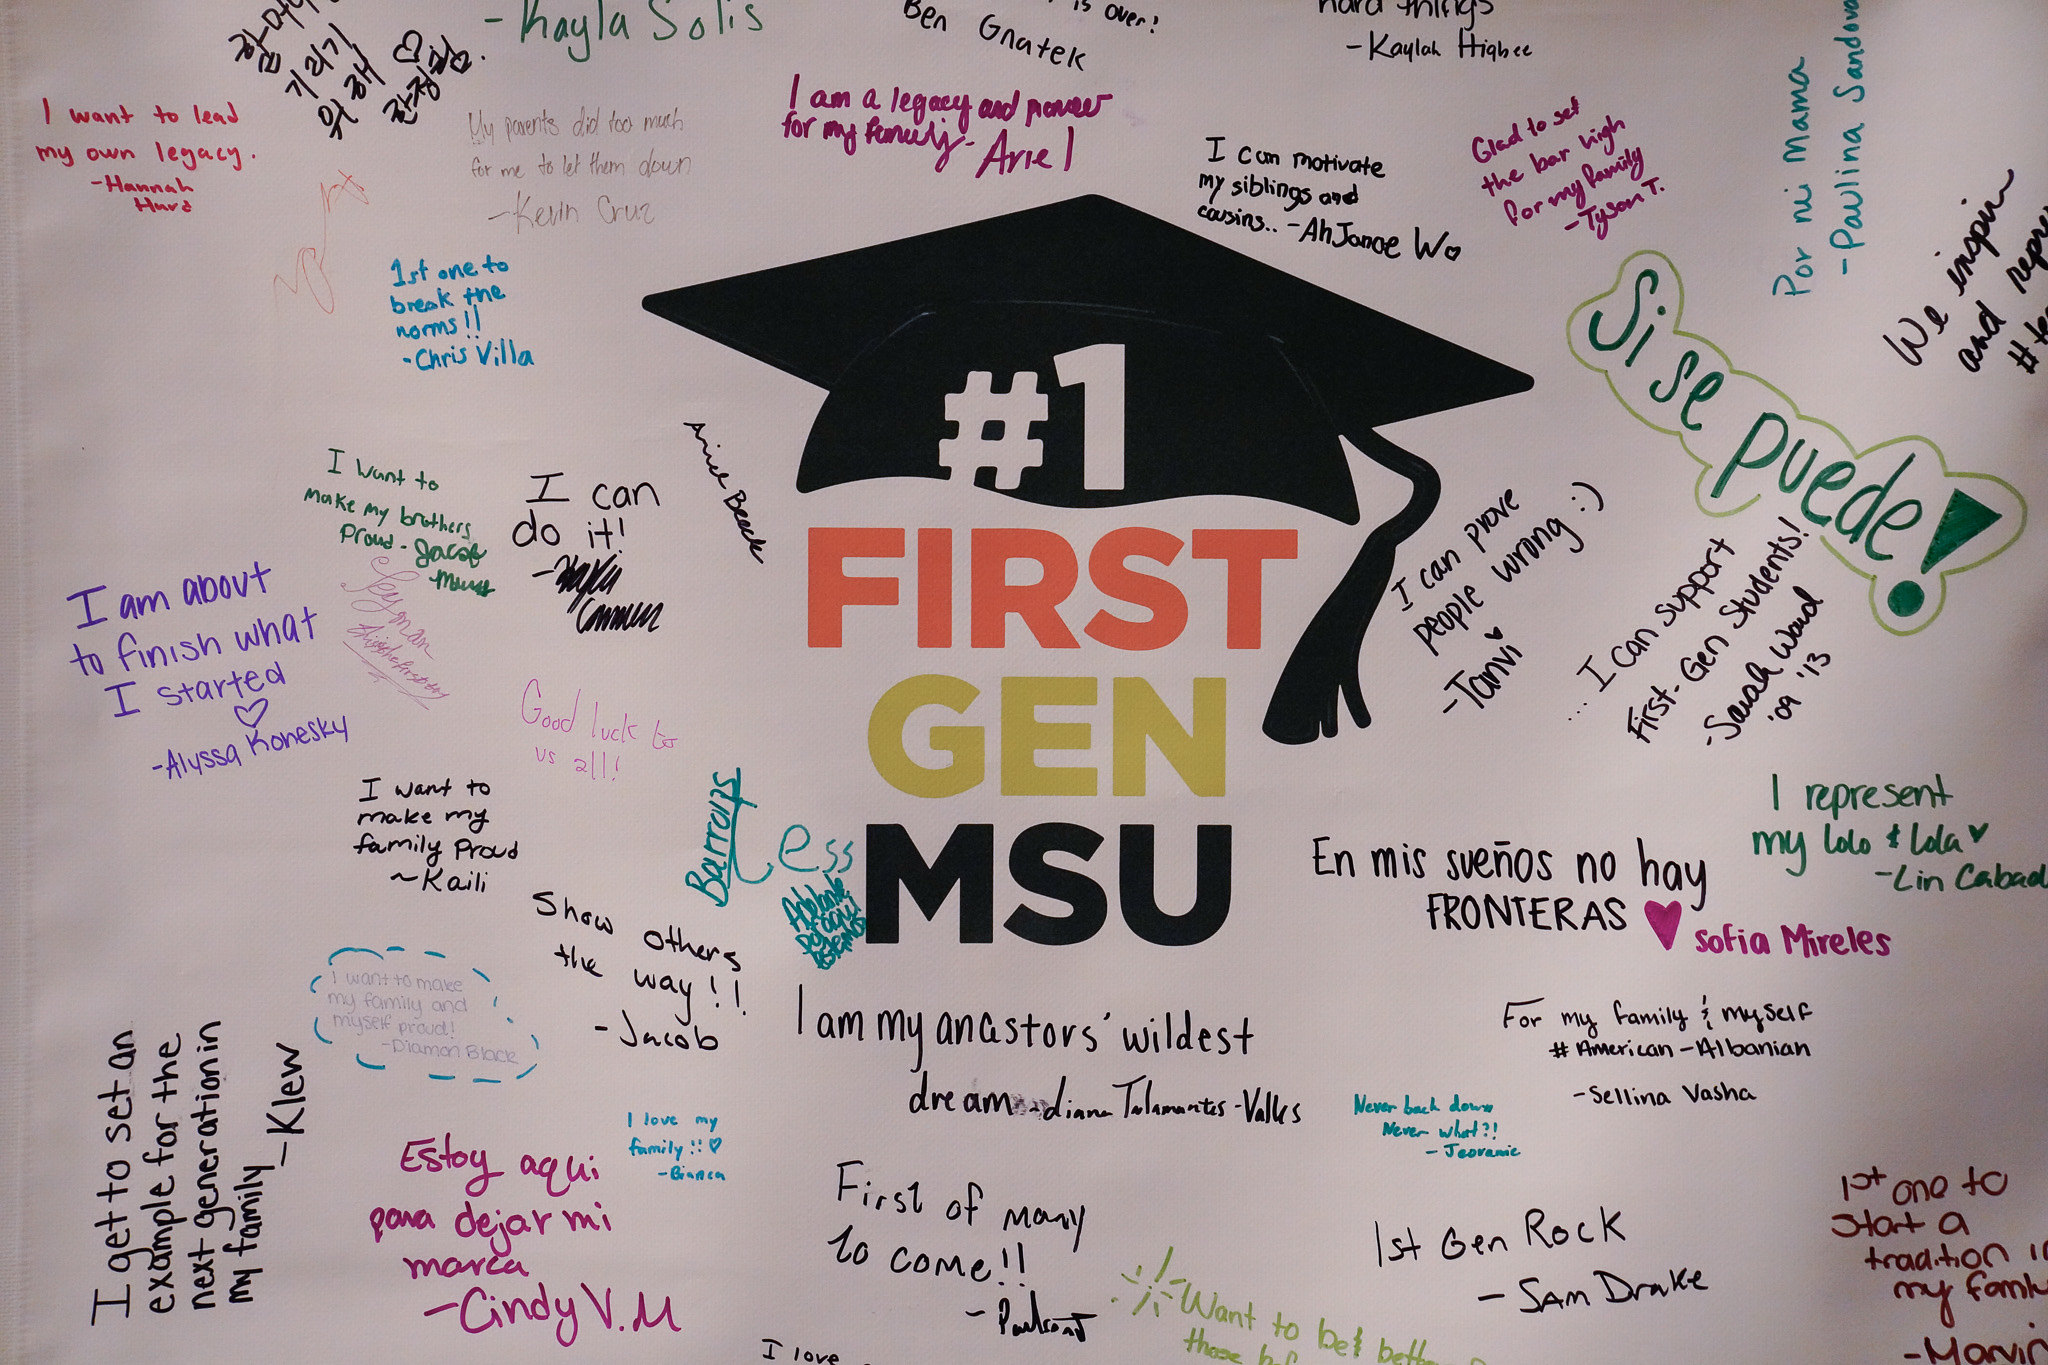 -Kayla Solis
is over!
Ben Gnatek
hard things
-Kaylah Higbee
기리기
위해
한정현
I want to lead
my own legacy.
-Hannah
Hurd
My parents did too much
for me to let them down
-Kevin Cruz
I am a legacy and pioneer
for my family- Ariel
I can motivate
my siblings and
cousins.. -AhJanae W
Glad to set
the bar high
for my family
-Tyson T.
Por mi Mama
-Paulina Sandova
We inspire
and
1st one to
break the
norms!!
-Chris Villa
Si se puede!
#1
FIRST
GEN
MSU
I want to
make my brothers
Proud - Jacob
I can
do it!
Beack
I can prove
people wrong :)
-Tanvi
... I can support
First-Gen Students!
-Sarah Ward
'09 '13
I am about
to finish what
I started
-Alyssa Konesky
Good luck to
us all!
I want to
make my
family Proud
~Kaili
Barrozas
Jess
Adelante
I represent
my lolo & lola
-Lin Cabad
En mis sueños no hay
FRONTERAS
Sofia Mireles
Show others
the way!!
-Jacob
I want to make
my family and
myself proud!
-Diamon Black
I am my ancestors' wildest
dream -diana Talamantes-Valles
For my family & myself
#American-Albanian
-Sellina Vasha
I get to set an
example for the
next generation in
my family -Klew
I love my
family!!
-Bianca
Never back down
Never what?!
Estoy aqui
para dejar mi
marca
-Cindy V.M
First of many
to come!!
1st Gen Rock
-Sam Drake
1st one to
start a
tradition in
my family
-Marvin
Want to be
those
I love